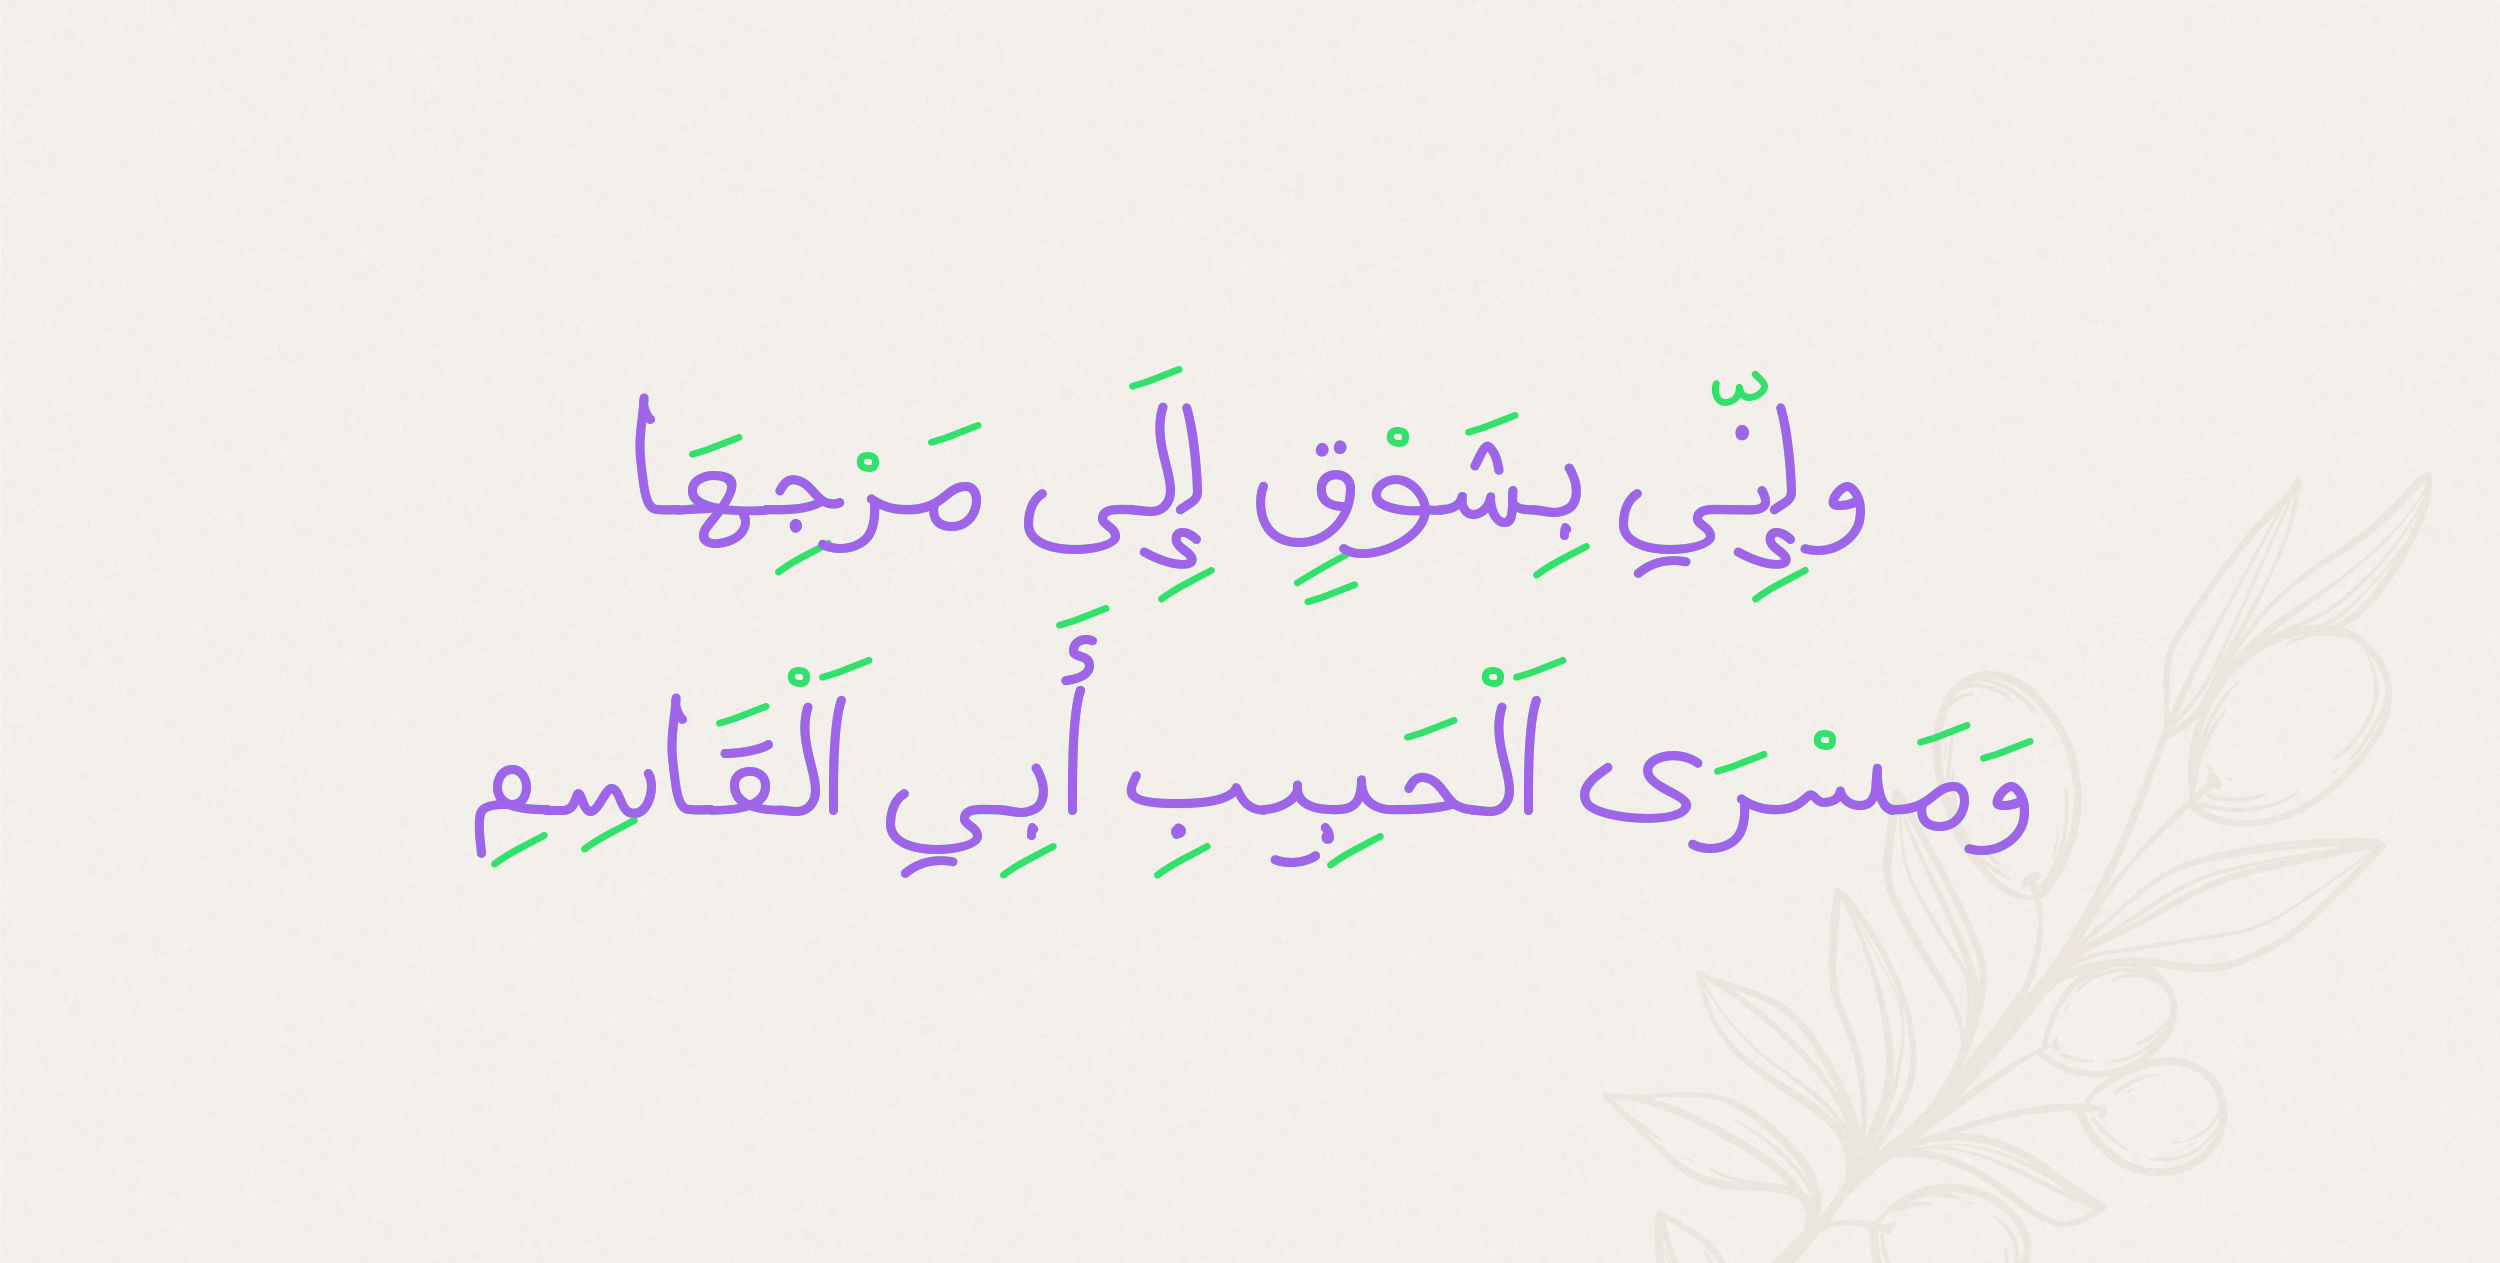 وإِنّي بِشَوْقٍ إِلَى مَرْجِهَا
وَمَسْرَى اَلْحَبِيبِ أَبِي اَلْقَاسِمِ